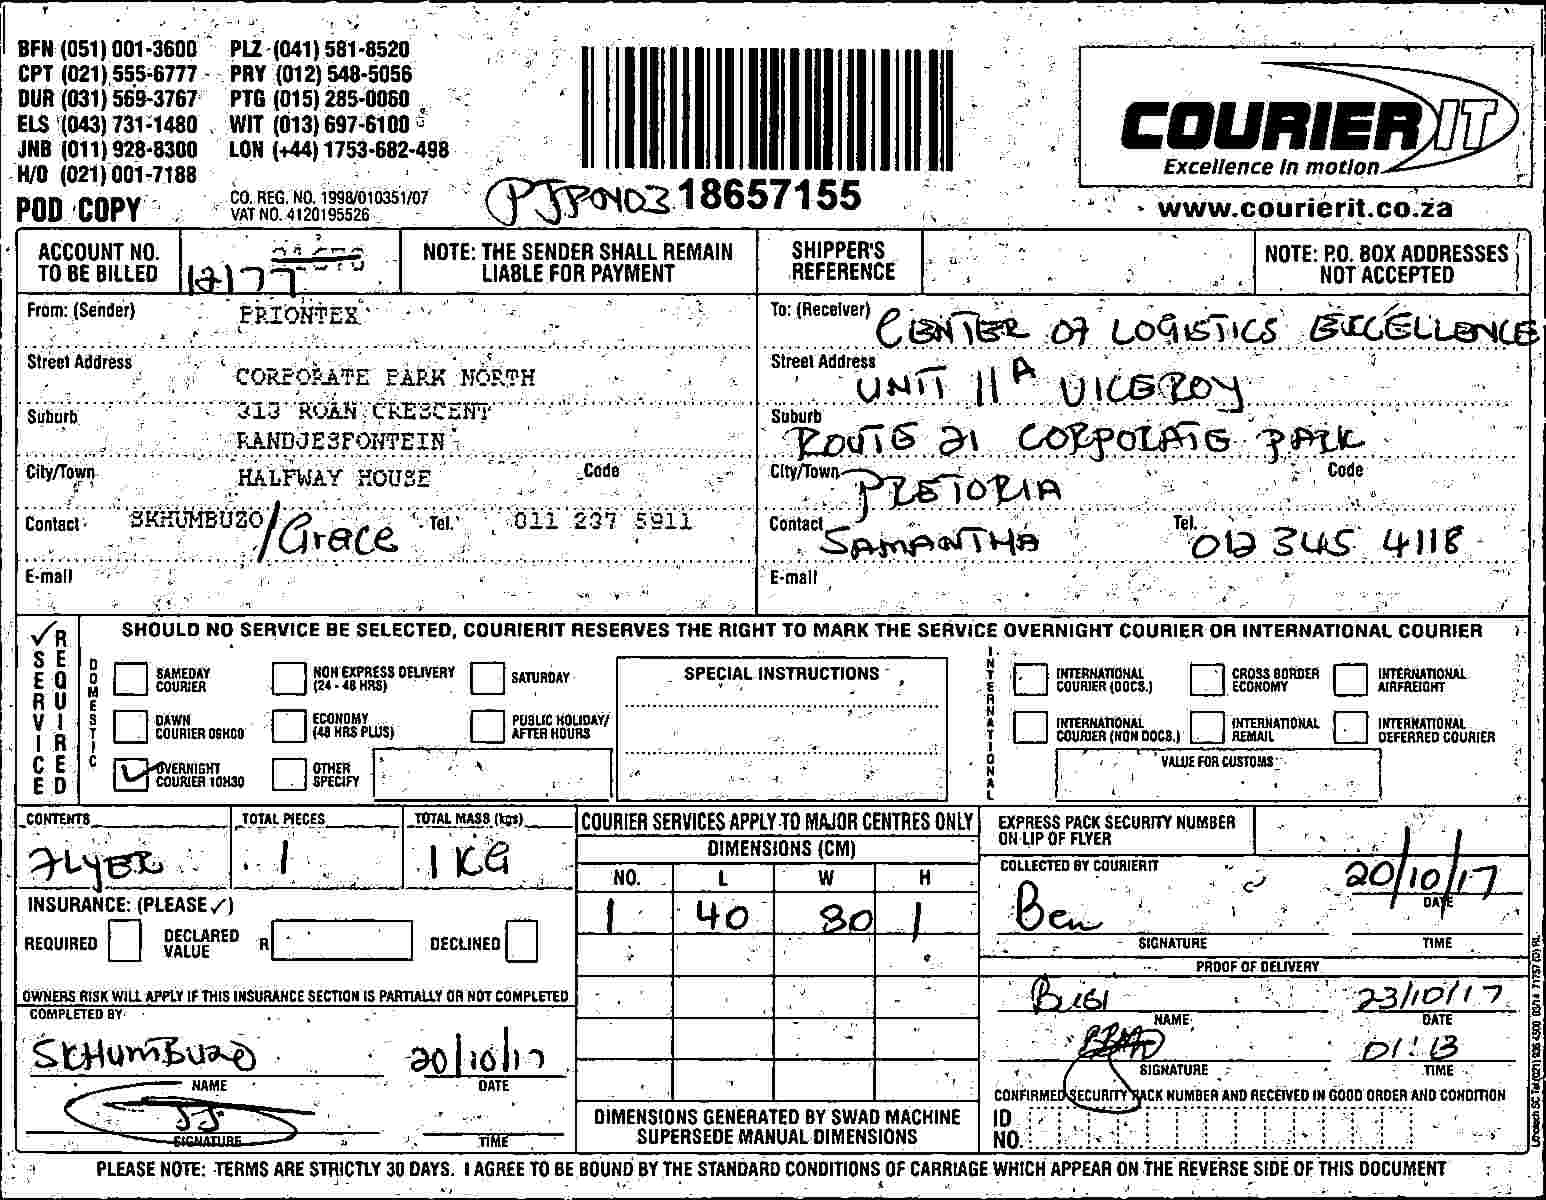 BFN (051) 001-3600 PLZ (041) 581-8520
CPT (021) 555-6777 PRY (012) 548-5056
DUR (031) 569-3767 PTG (015) 285-0060
ELS (043) 731-1480 WIT (013) 697-6100
JNB (011) 928-8300 LON (+44) 1753-682-498
H/O (021) 001-7188
POD COPY
CO. REG. NO. 1998/010351/07
VAT NO. 4120195526
PJP0403 18657155
COURIER IT
Excellence in motion
www.courierit.co.za
ACCOUNT NO. TO BE BILLED 12177
NOTE: THE SENDER SHALL REMAIN LIABLE FOR PAYMENT
SHIPPER'S REFERENCE
NOTE: P.O. BOX ADDRESSES NOT ACCEPTED
From: (Sender) PRIONTEX
Street Address CORPORATE PARK NORTH
Suburb 313 ROAN CRESCENT
RANDJESFONTEIN
City/Town HALFWAY HOUSE Code
Contact SKHUMBUZO/Grace Tel. 011 237 5911
E-mail
To: (Receiver) CENTER OF LOGISTICS EXCELLENCE
Street Address UNIT 11A VICEROY
Suburb ROUTE 21 CORPORATE PARK
City/Town PRETORIA Code
Contact SAMANTHA Tel. 012 345 4118
E-mail
✓ SERVICE REQUIRED
SHOULD NO SERVICE BE SELECTED, COURIERIT RESERVES THE RIGHT TO MARK THE SERVICE OVERNIGHT COURIER OR INTERNATIONAL COURIER
DOMESTIC
SAMEDAY COURIER
NON EXPRESS DELIVERY (24 - 48 HRS)
SATURDAY
DAWN COURIER 08H00
ECONOMY (48 HRS PLUS)
PUBLIC HOLIDAY/ AFTER HOURS
✓ OVERNIGHT COURIER 10H30
OTHER SPECIFY
SPECIAL INSTRUCTIONS
INTERNATIONAL
INTERNATIONAL COURIER (DOCS.)
CROSS BORDER ECONOMY
INTERNATIONAL AIRFREIGHT
INTERNATIONAL COURIER (NON DOCS.)
INTERNATIONAL REMAIL
INTERNATIONAL DEFERRED COURIER
VALUE FOR CUSTOMS
CONTENTS FLYER
TOTAL PIECES 1
TOTAL MASS (kgs) 1 KG
INSURANCE: (PLEASE ✓)
REQUIRED DECLARED VALUE R DECLINED
OWNERS RISK WILL APPLY IF THIS INSURANCE SECTION IS PARTIALLY OR NOT COMPLETED
COMPLETED BY
SKHUMBUZO 20/10/17
NAME DATE
SIGNATURE TIME
COURIER SERVICES APPLY TO MAJOR CENTRES ONLY
DIMENSIONS (CM)
NO. L W H
1 40 30 1
DIMENSIONS GENERATED BY SWAD MACHINE
SUPERSEDE MANUAL DIMENSIONS
EXPRESS PACK SECURITY NUMBER ON LIP OF FLYER
COLLECTED BY COURIERIT
Ben 20/10/17
DATE
SIGNATURE TIME
PROOF OF DELIVERY
Busi 23/10/17
NAME DATE
01:13
SIGNATURE TIME
CONFIRMED SECURITY PACK NUMBER AND RECEIVED IN GOOD ORDER AND CONDITION
ID NO.
PLEASE NOTE: TERMS ARE STRICTLY 30 DAYS. I AGREE TO BE BOUND BY THE STANDARD CONDITIONS OF CARRIAGE WHICH APPEAR ON THE REVERSE SIDE OF THIS DOCUMENT